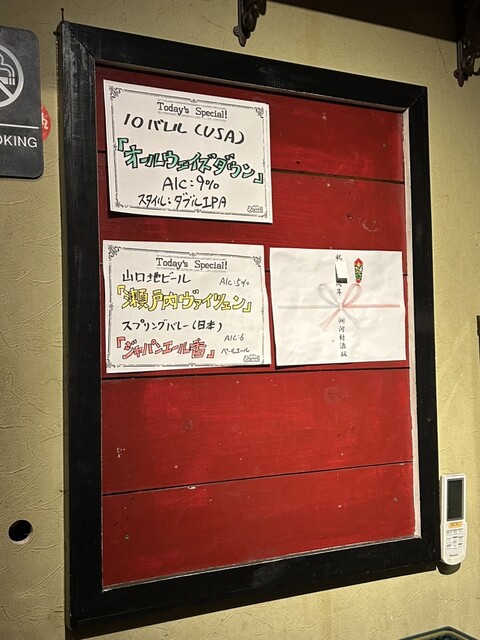 OKING
Today's Special!
10バレル(USA)
『オールウェイズダウン』
Alc:9%
スタイル:ダブルIPA
Today's Special!
山口地ビール Alc:5%
『瀬戸内ヴァイツェン』
スプリングバレー(日本) Alc:6
『ジャパンエール香』 ペールエール
祝 周年
㈲河村酒販